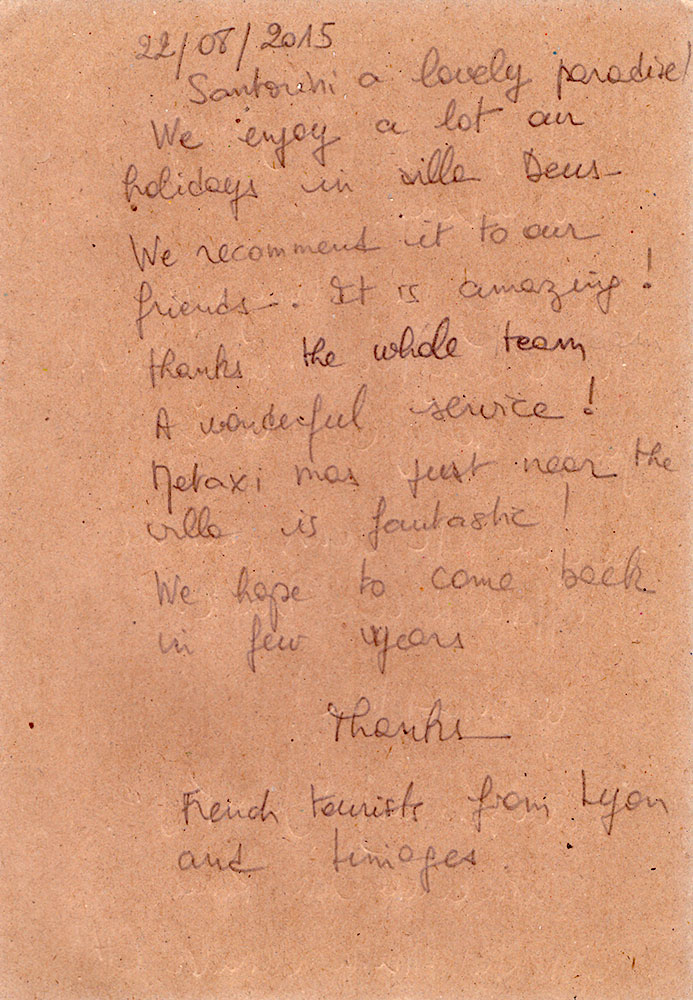 22/08/2015
Santorini a lovely paradise!
We enjoy a lot our
holidays in villa Deus
We recommend it to our
friends. It is amazing!
thanks the whole team
A wonderful service!
Metaxi mas just near the
villa is fantastic!
We hope to come back
in few years
Thanks
French tourists from Lyon
and Limoges.